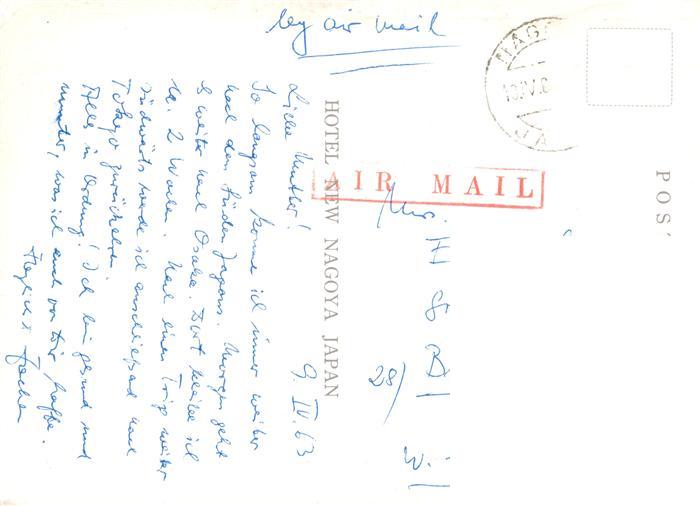 by air mail
NAG
10.IV.6
JA
POS
AIR MAIL
HOTEL NEW NAGOYA JAPAN
9. IV. 63
Liebe Mutter!
So langsam komme ich immer weiter
nach dem Süden Japans. Morgen geht
es weiter nach Osaka. Dort bleibe ich
ca. 2 Wochen. Nach einem Trip weiter
südwärts werde ich anschließend nach
Tokyo zurückkehren.
Alles in Ordnung! Ich bin gesund und
munter, was ich auch von Dir hoffe.
Herzlichst Jochen
Mrs.
28/
W.